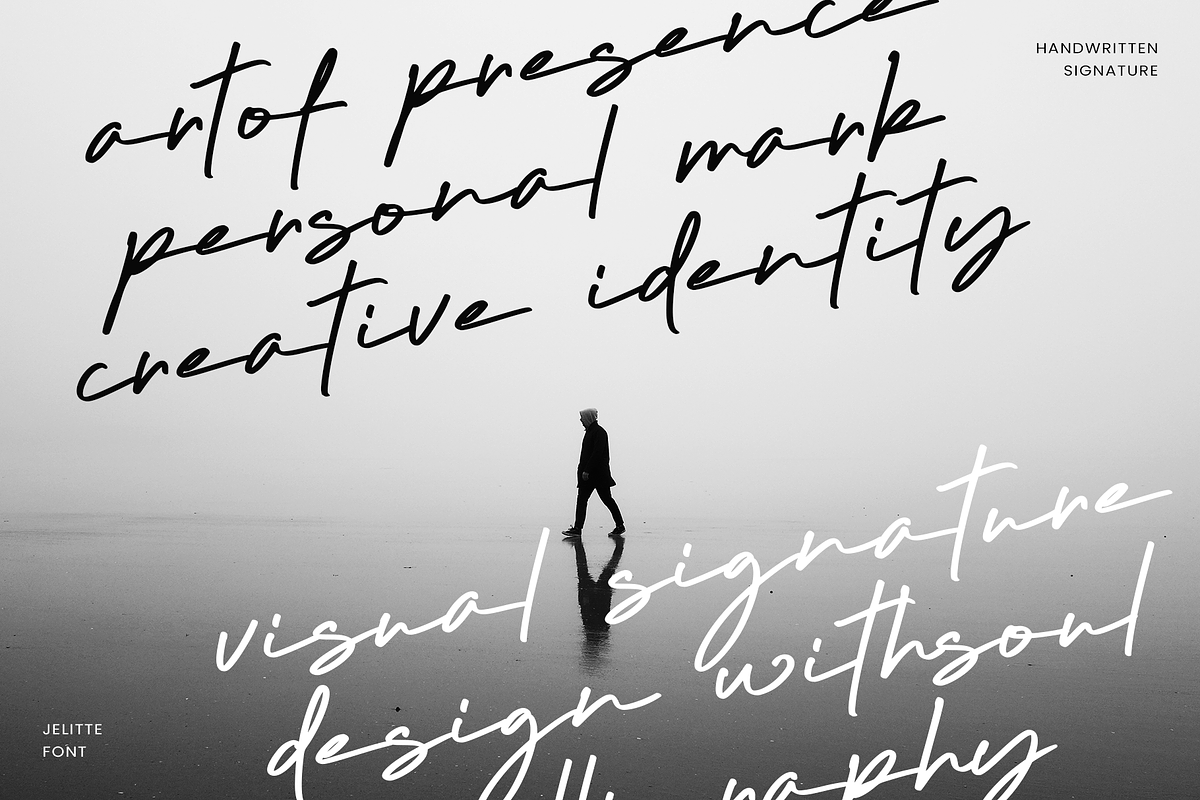 HANDWRITTEN
SIGNATURE
artof presence
personal mark
creative identity
visual signature
design withsoul
JELITTE
FONT